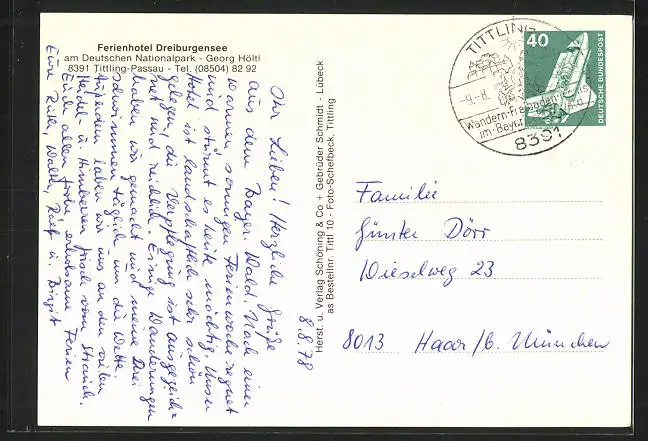 Ferienhotel Dreiburgensee
am Deutschen Nationalpark - Georg Höltl
8391 Tittling-Passau - Tel. (08504) 82 92
8.8.78
Ihr Lieben! Herzliche Grüße
aus dem Bayer. Wald. Nach einer
warmen sonnigen Ferienwoche regnet
und stürmt es heute mächtig. Unser
Hotel ist landschaftlich sehr schön
gelegen, die Verpflegung ist ausgezeich=
net und reichlich. Einige Wanderungen
haben wir gemacht und meine Drei
schwimmen täglich um die Wette.
Außerdem laben wir uns an den vielen
Heidel- u. Himbeeren frisch vom Strauch.
Euch allen frohe, erholsame Ferien
Eure Ruth, Walter, Ralf u. Birgit
Herst. u. Verlag Schöning & Co + Gebrüder Schmidt - Lübeck
as Bestellnr. Tittl 10 - Foto-Schefbeck, Tittling
TITTLING
-9.-8.
Wandern-Freibaden
im Bayer.
8391
40
DEUTSCHE BUNDESPOST
Familie
Günter Dörr
Wieselweg 23
8013 Haar/b. München